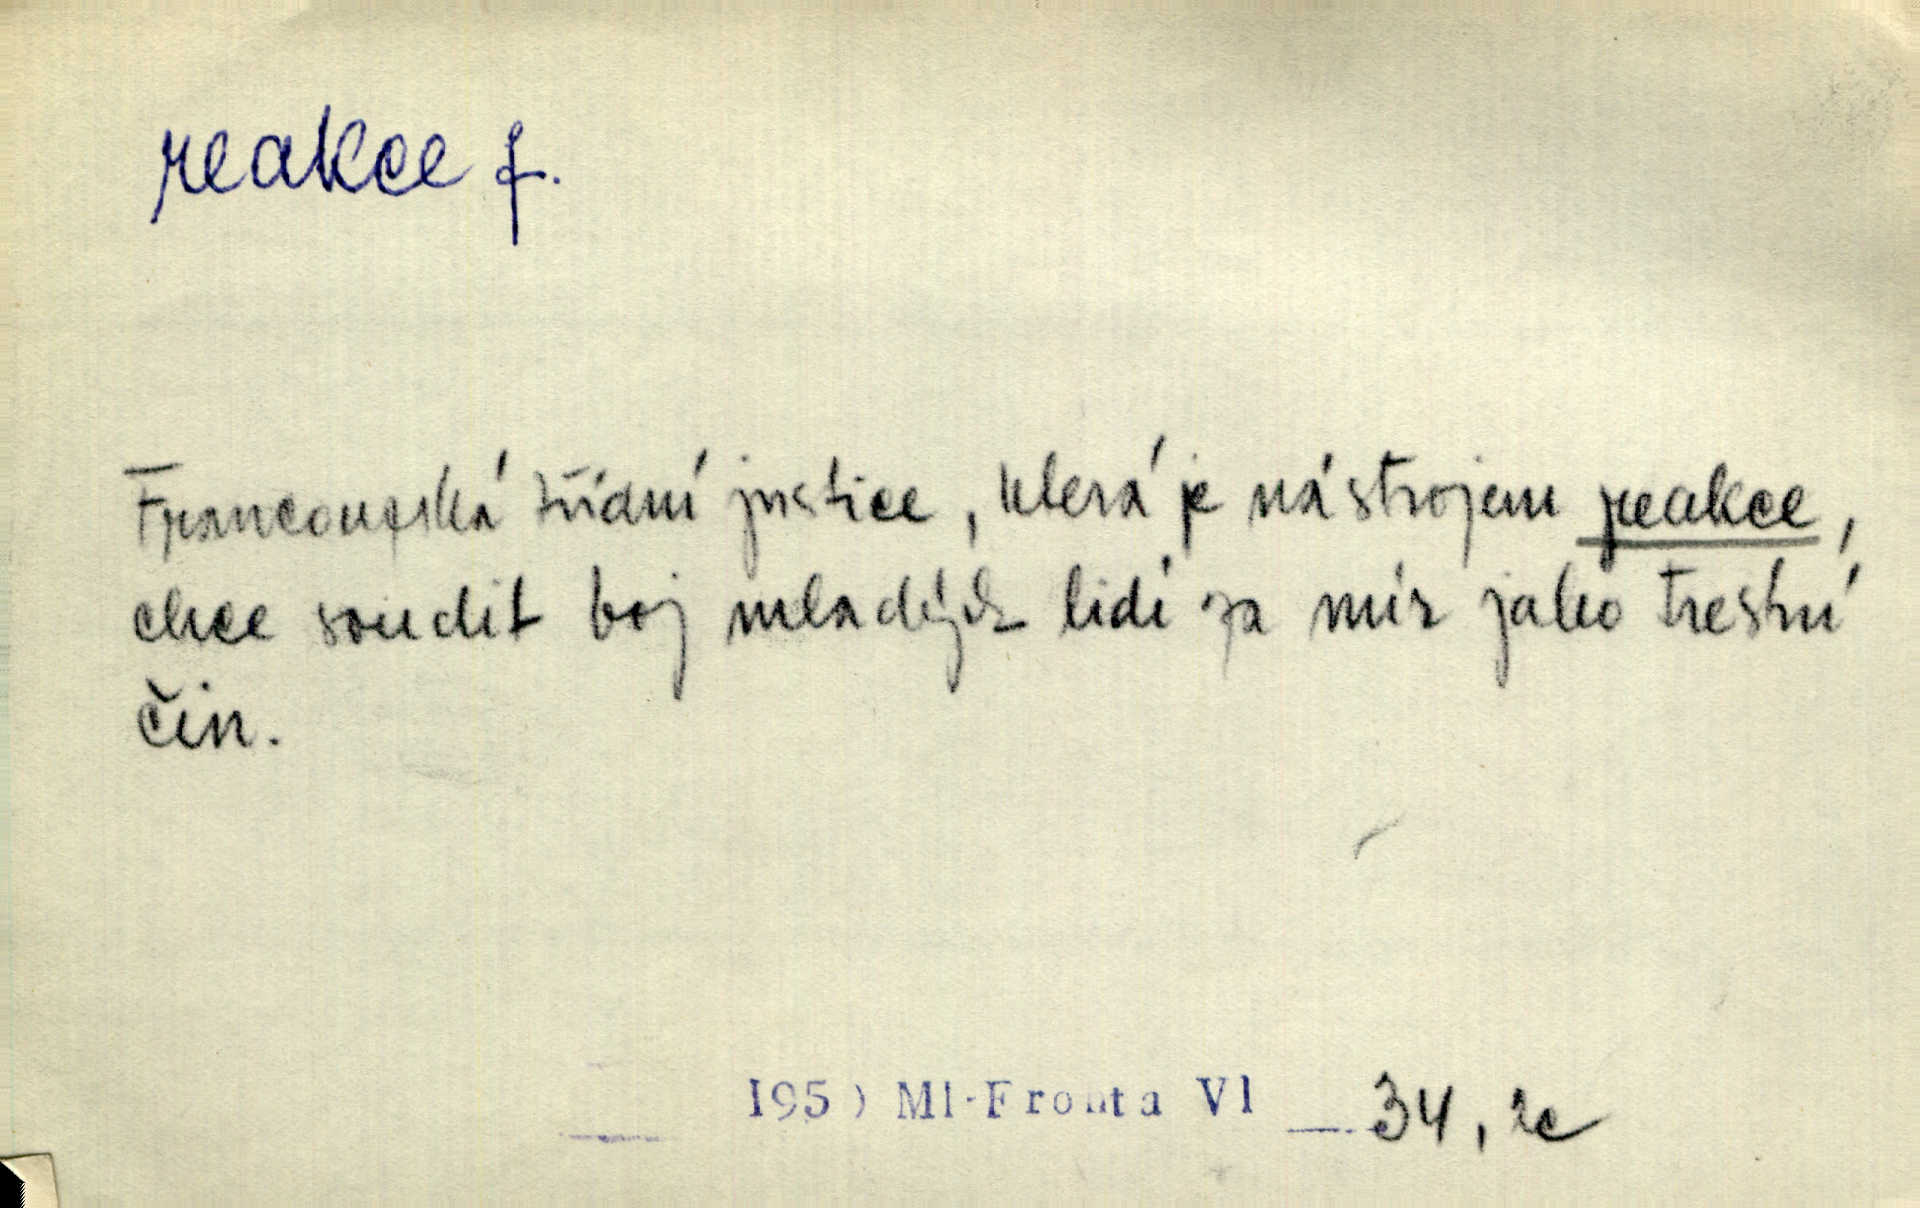 reakce f.
Francouzská třídní justice, která je nástrojem reakce,
chce soudit boj mladých lidí za mír jako trestní
čin.
Ml-Fronta VI 34, 2c